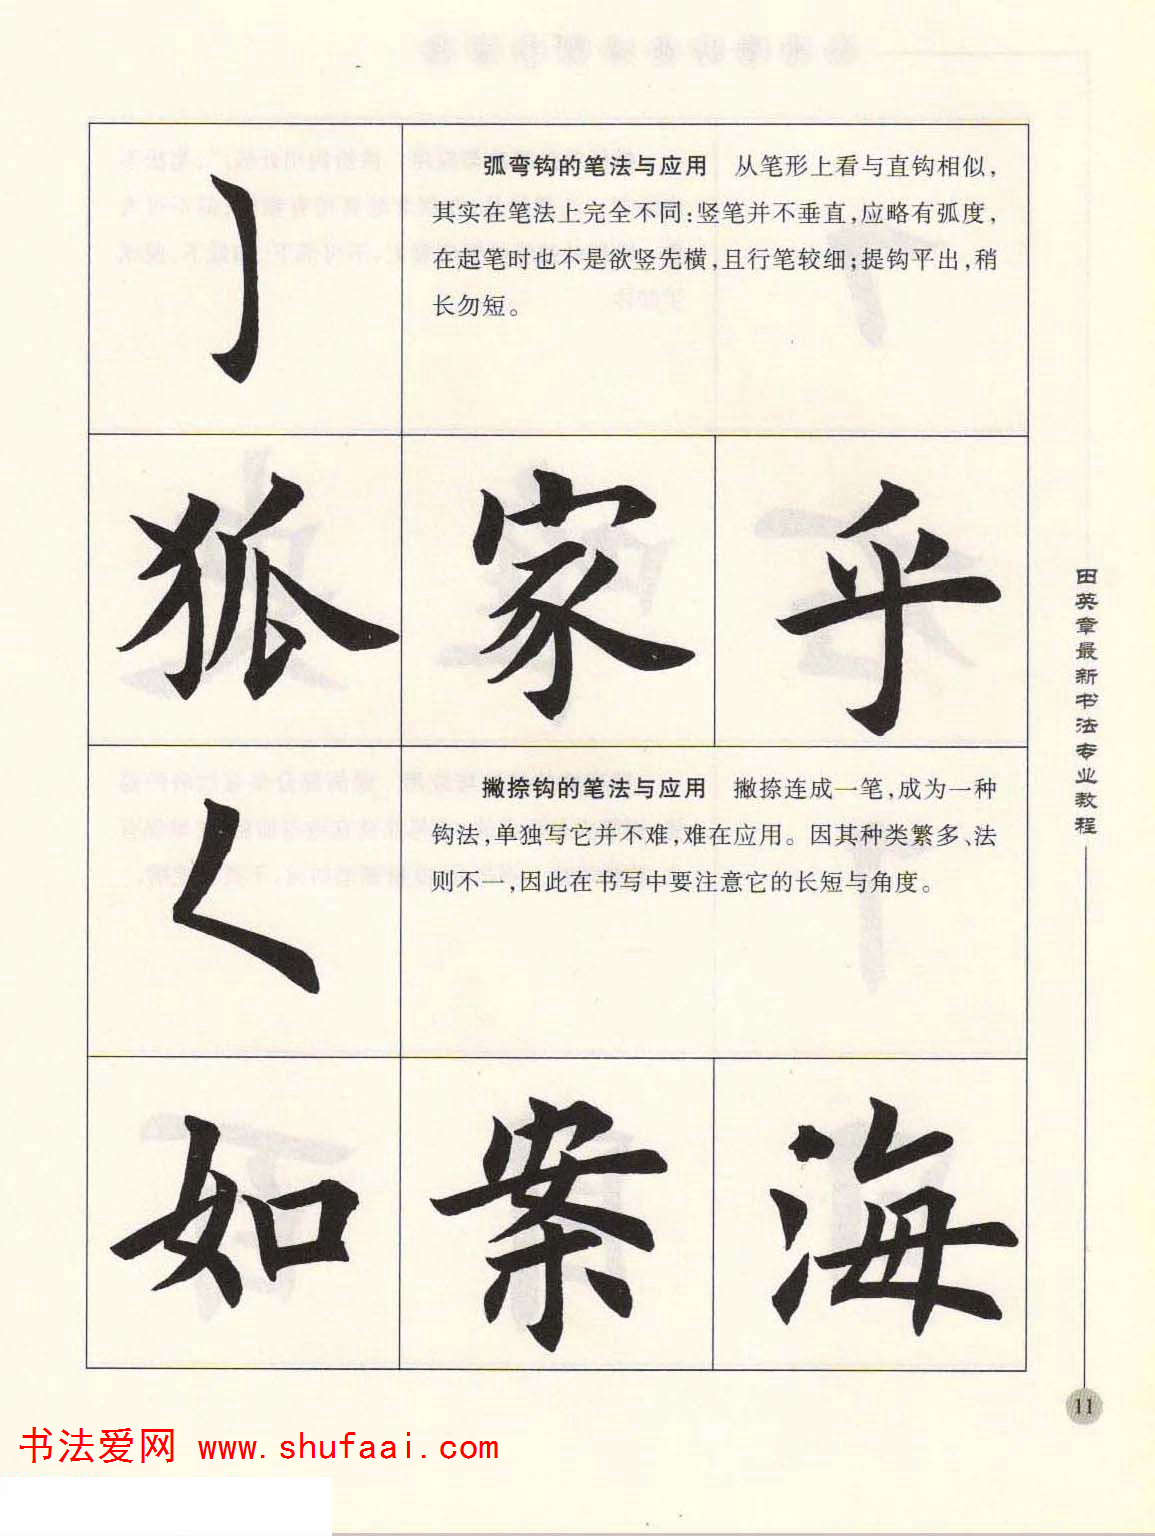 弧弯钩的笔法与应用　从笔形上看与直钩相似，
其实在笔法上完全不同：竖笔并不垂直，应略有弧度，
在起笔时也不是欲竖先横，且行笔较细；提钩平出，稍
长勿短。
狐 家 乎
撇捺钩的笔法与应用　撇捺连成一笔，成为一种
钩法，单独写它并不难，难在应用。因其种类繁多、法
则不一，因此在书写中要注意它的长短与角度。
如 案 海
田英章最新书法专业教程
11
书法爱网 www.shufaai.com